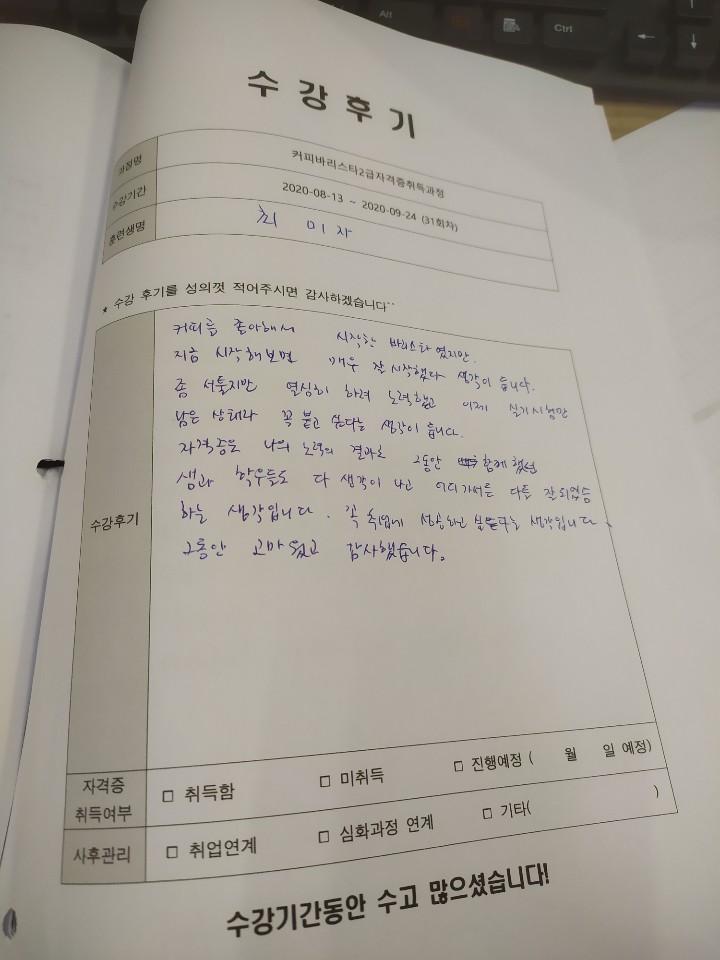 Alt
Ctrl
수강후기
과정명 커피바리스타2급자격증취득과정
수강기간 2020-08-13 ~ 2020-09-24 (31회차)
훈련생명 최 미자
* 수강 후기를 성의껏 적어주시면 감사하겠습니다^^
수강후기
커피를 좋아해서 시작한 바리스타 였지만.
지금 시작해보면 매우 잘 시작했다 생각이 듭니다.
좀 서툴지만 열심히 하려 노력했고 이제 실기시험만
남은 상태라 꼭 붙고 싶다는 생각이 듭니다.
자격증은 나의 노력의 결과로 그동안 함께 했던
쌤과 학우들도 다 생각이 나고 어디가서든 다들 잘되었음
하는 생각입니다. 꼭 취업에 성공하고 싶다는 생각입니다.
그동안 고마웠고 감사했습니다.
자격증 취득여부 □ 취득함 □ 미취득 □ 진행예정 ( 월 일 예정)
사후관리 □ 취업연계 □ 심화과정 연계 □ 기타( )
수강기간동안 수고 많으셨습니다!